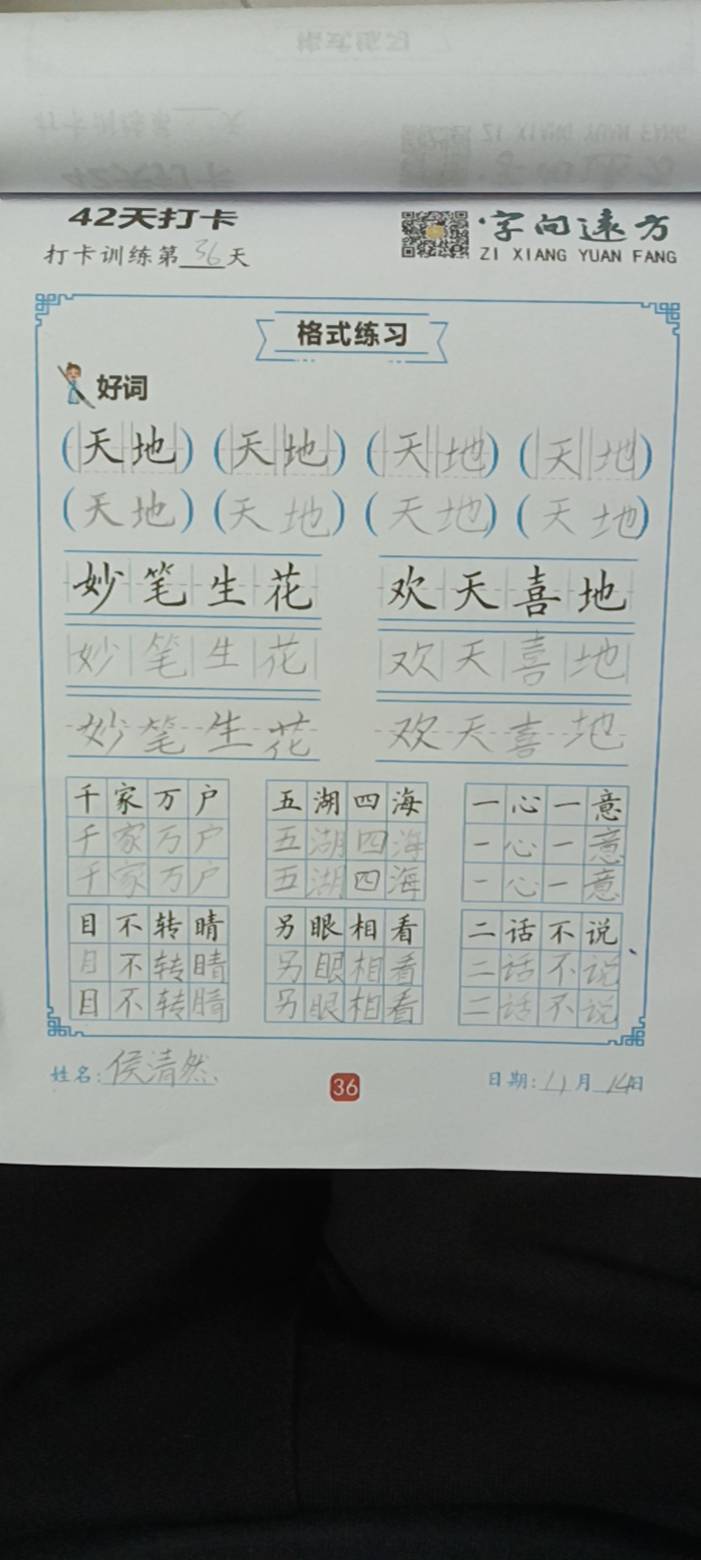 42天打卡
字向远方
打卡训练第36天
ZI XIANG YUAN FANG
格式练习
好词
(天地) (天地) (天地) (天地)
(天地) (天地) (天地) (天地)
妙笔生花 欢天喜地
妙笔生花 欢天喜地
妙笔生花 欢天喜地
千家万户 五湖四海 一心一意
千家万户 五湖四海 一心一意
千家万户 五湖四海 一心一意
目不转睛 另眼相看 二话不说
目不转睛 另眼相看 二话不说
目不转睛 另眼相看 二话不说
姓名:侯清然 36 日期:11月14日